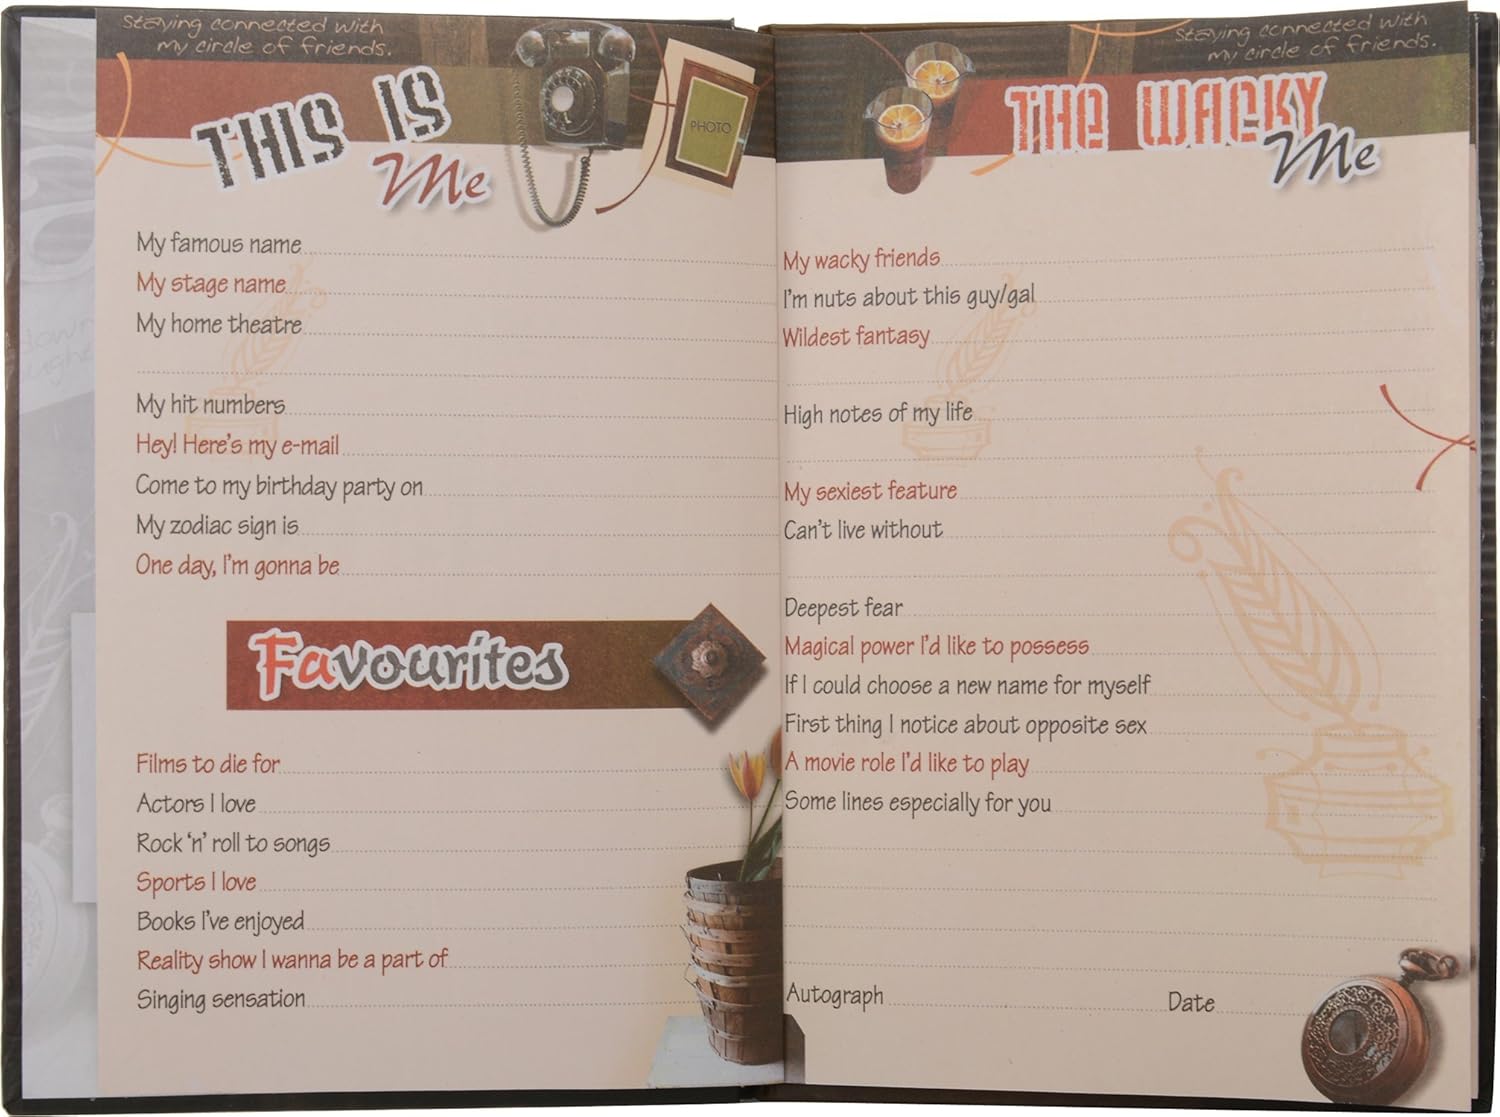 Staying connected with
my circle of friends.
THIS IS
Me
PHOTO
My famous name
My stage name
My home theatre
My hit numbers
Hey! Here's my e-mail
Come to my birthday party on
My zodiac sign is
One day, I'm gonna be
Favourites
Films to die for
Actors I love
Rock 'n' roll to songs
Sports I love
Books I've enjoyed
Reality show I wanna be a part of
Singing sensation
Staying connected with
my circle of friends.
THE WACKY
Me
My wacky friends
I'm nuts about this guy/gal
Wildest fantasy
High notes of my life
My sexiest feature
Can't live without
Deepest fear
Magical power I'd like to possess
If I could choose a new name for myself
First thing I notice about opposite sex
A movie role I'd like to play
Some lines especially for you
Autograph Date